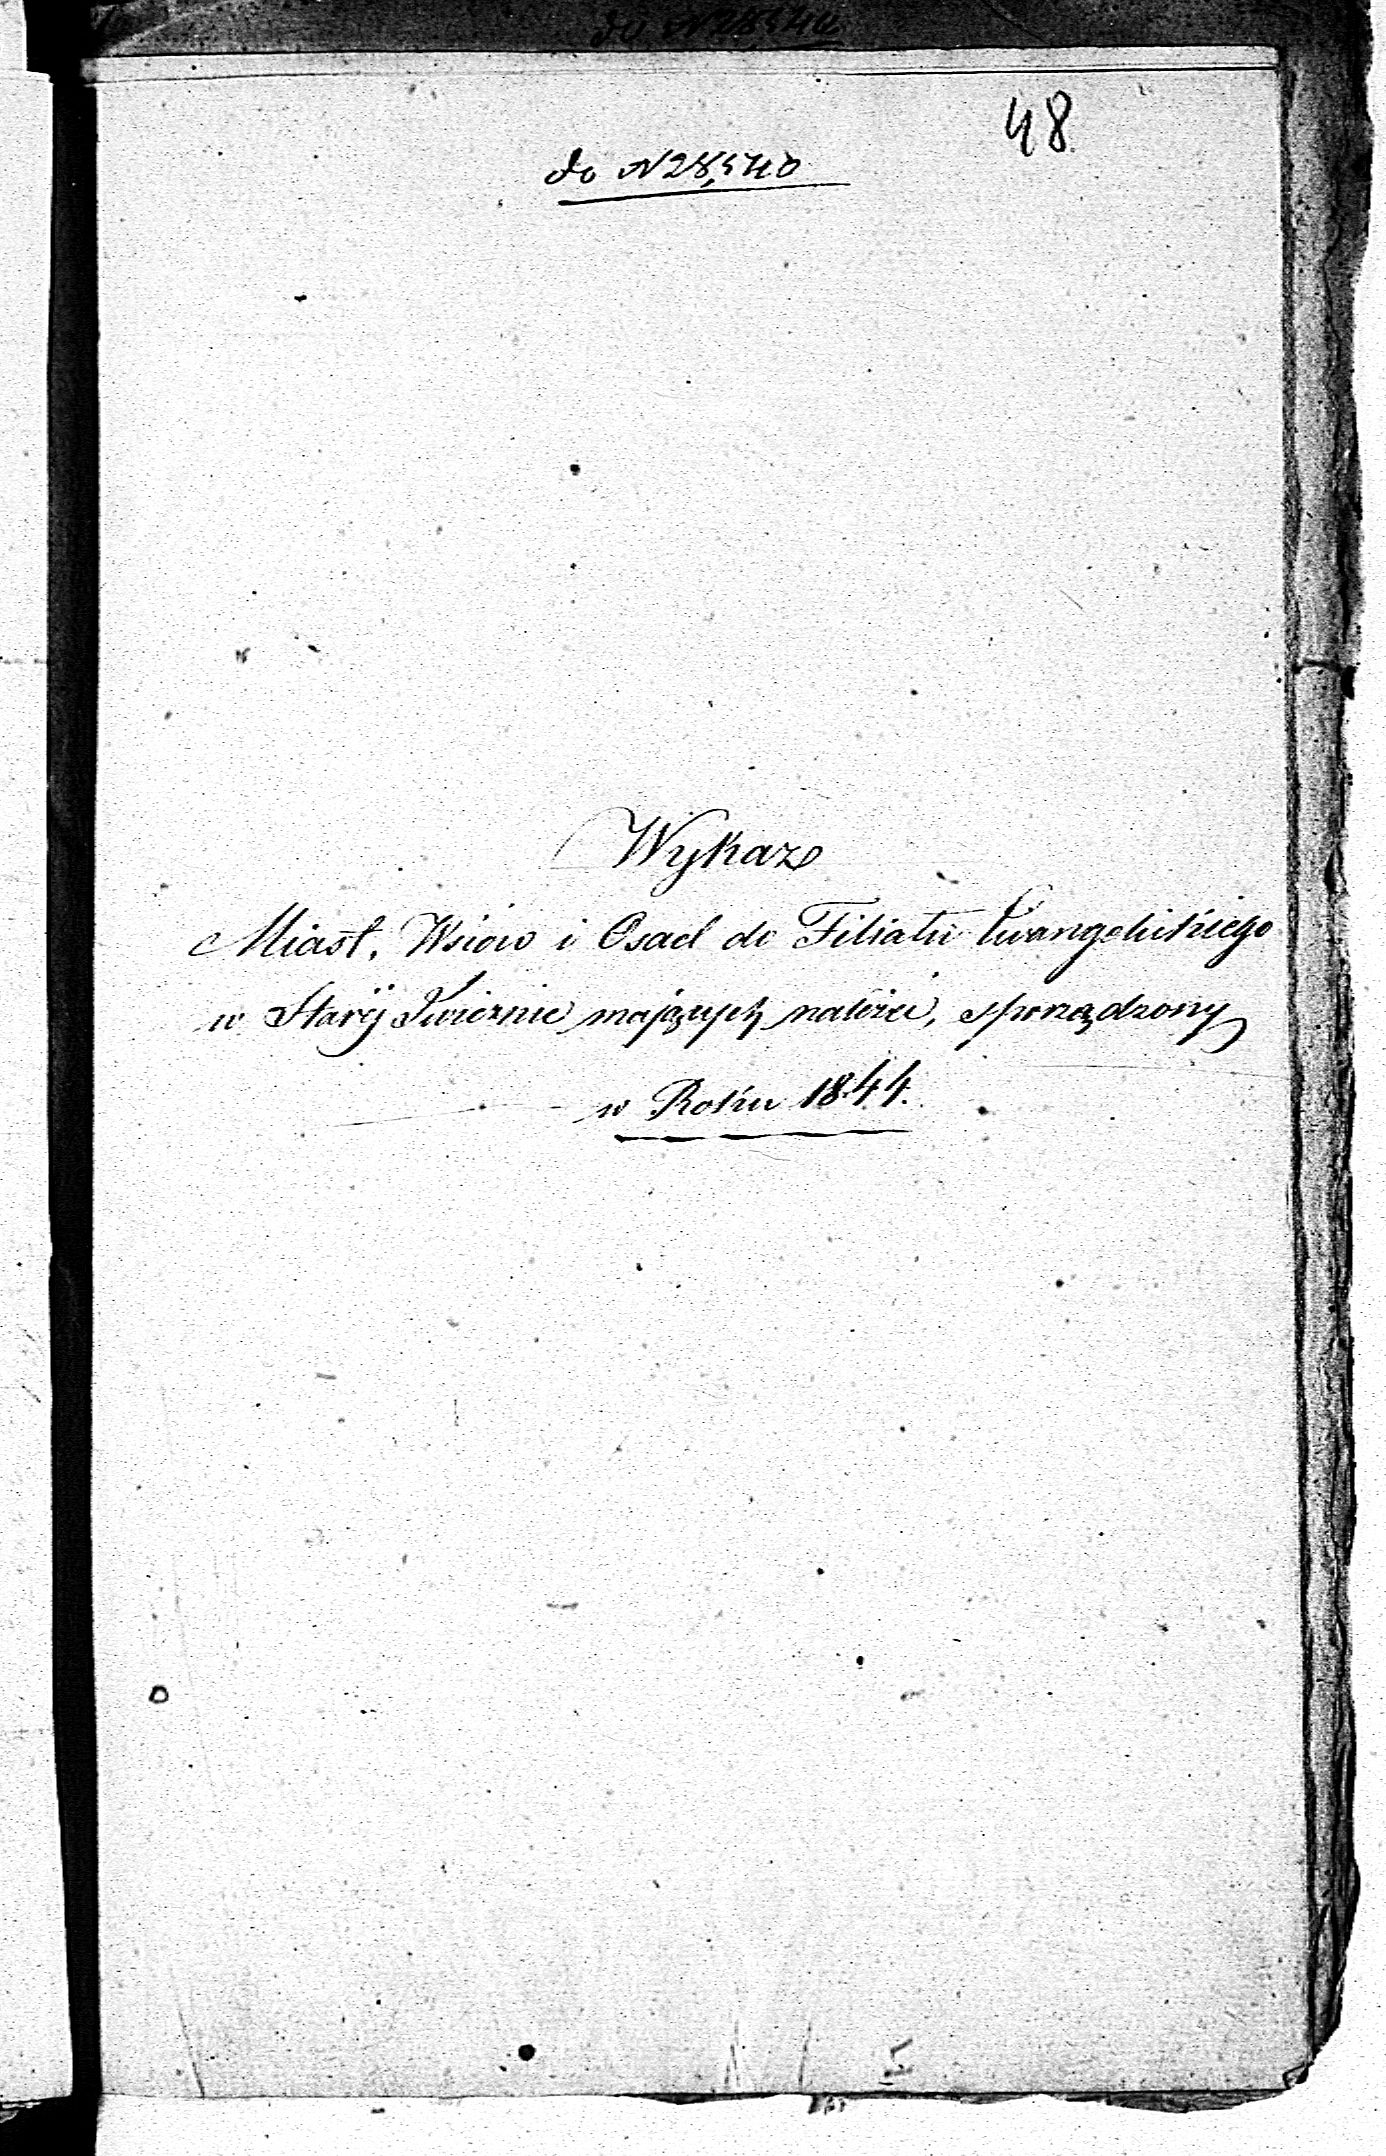 do N 28,540
48
do N 28,540
Wykaz
Miast, Wsiów i Osad do Filiału Ewangelickiego
w Starÿ Iwicznie mających należeć, sporządzony
w Roku 1844.